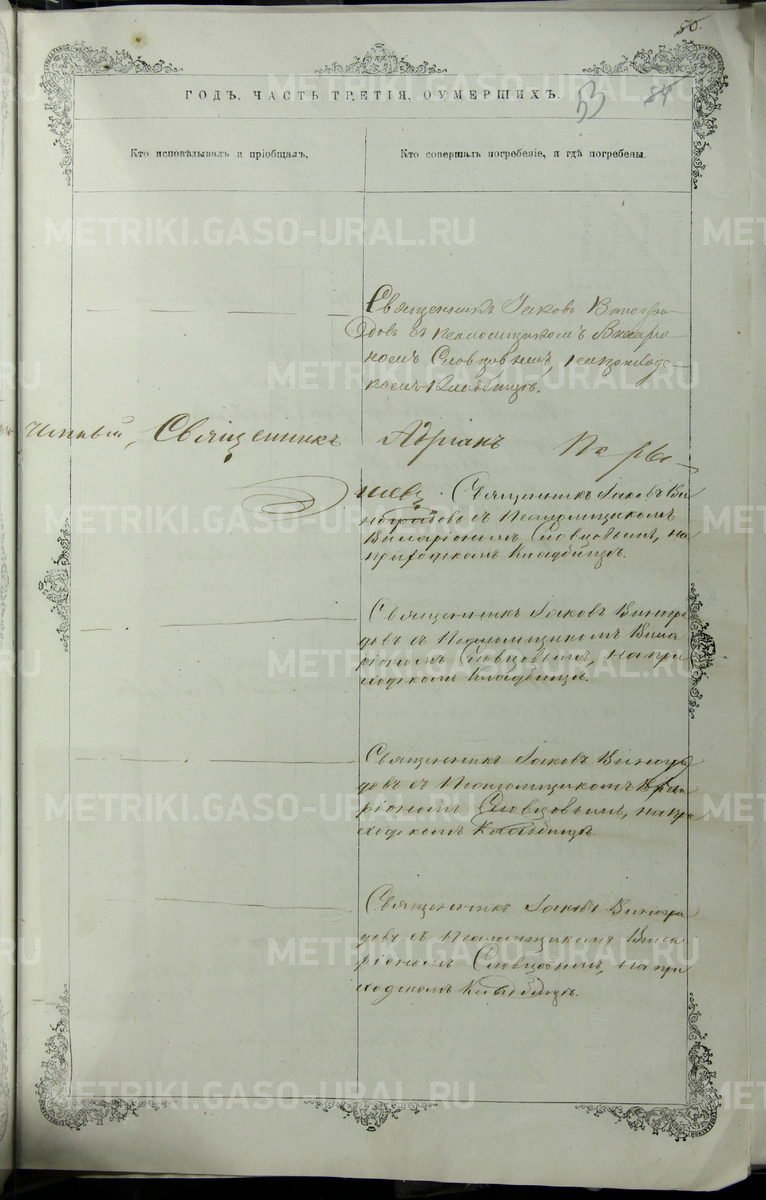 50.
53
84
ГОДЪ. ЧАСТЬ ТРЕТІЯ, О УМЕРШИХЪ.
Кто исповѣдывалъ и пріобщалъ.
Кто совершалъ погребеніе, и гдѣ погребены.
Священникъ Іаковъ Виногра-
довъ съ Псаломщикомъ Виссаріо-
номъ Словцовымъ, на приходс-
комъ Кладбищѣ.
Священникъ Адріанъ
Священникъ Іаковъ Ви-
ноградовъ съ Псаломщикомъ
Виссаріономъ Словцовымъ, на
приходскомъ Кладбищѣ.
Священникъ Іаковъ Виногра
довъ съ Псаломщикомъ Висса
ріономъ Словцовымъ, на при
ходскомъ Кладбищѣ.
Священникъ Іаковъ Виногра
довъ съ Псаломщикомъ Висса
ріономъ Словцовымъ, на при
ходскомъ Кладбищѣ.
Священникъ Іаковъ Виногра
довъ съ Псаломщикомъ Висса
ріономъ Словцовымъ, на при
ходскомъ Кладбищѣ.
METRIKI.GASO-URAL.RU